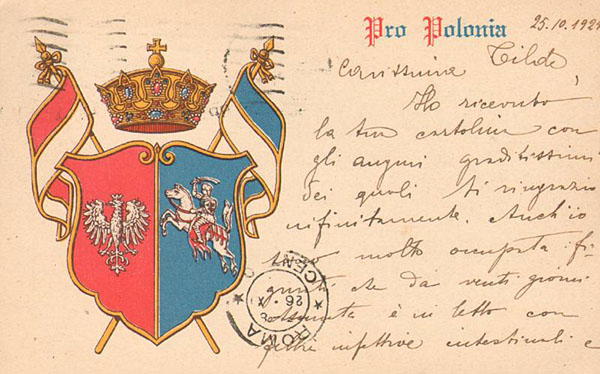 Pro Polonia
25.10.192
Carissima Tilde,
Ho ricevuto
la tua cartolina con
gli auguri graditissimi
dei quali ti ringrazio
infinitamente. Anch'io
molto occupata fi-
che da venti giorni
è in letto con
febbri infettive intestinali e
ROMA CENTRO
26·X